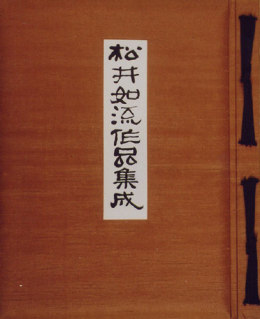 松井如流作品集成